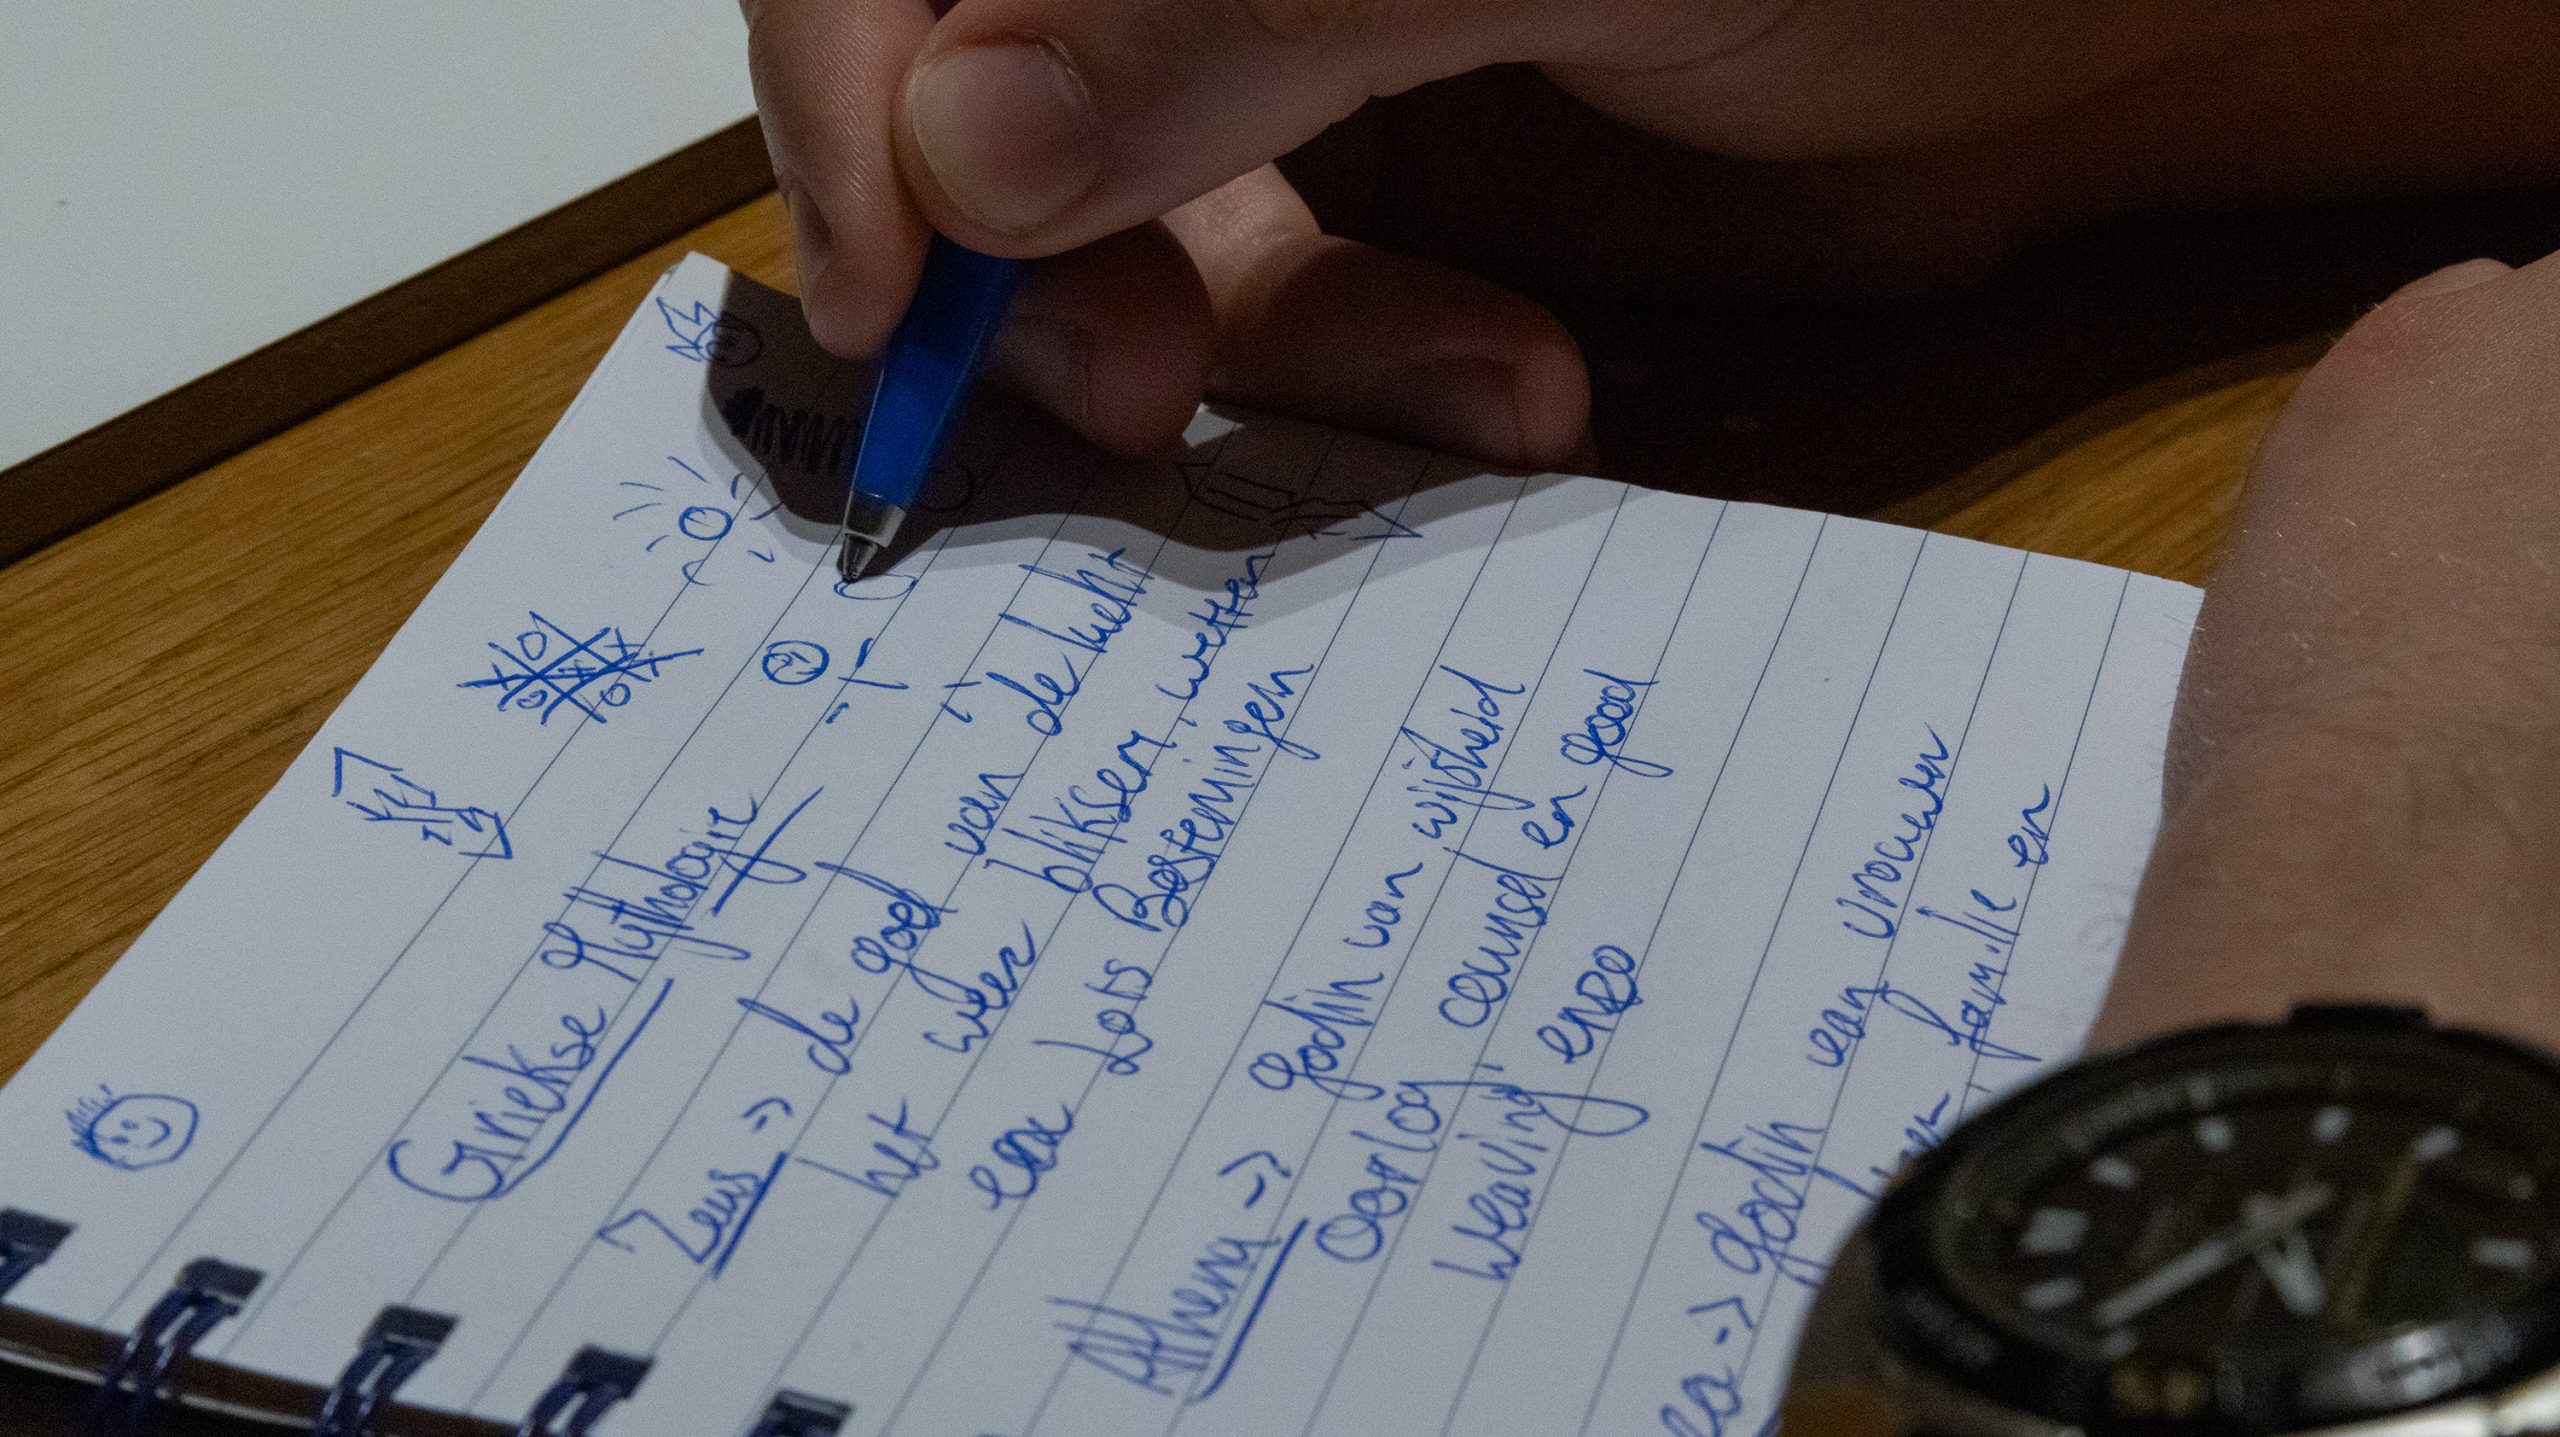 Griekse Mythologie
Zeus -> de god van de lucht
het weer bliksem, wetten
en Lots Bestemingen
Athena -> godin van wijsheid
Oorlog, counsel en good
weaving enzo
-> godin van vrouwen
familie en